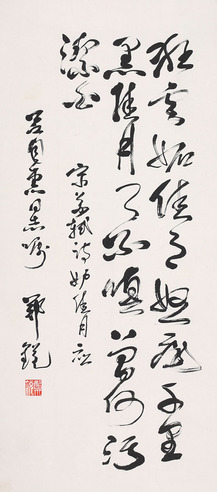 狂雲妬佳月怒飛千里
黑佳月了不嗔曾何污
潔白
宋蘇軾詩妒佳月應
同志嘱
鄭